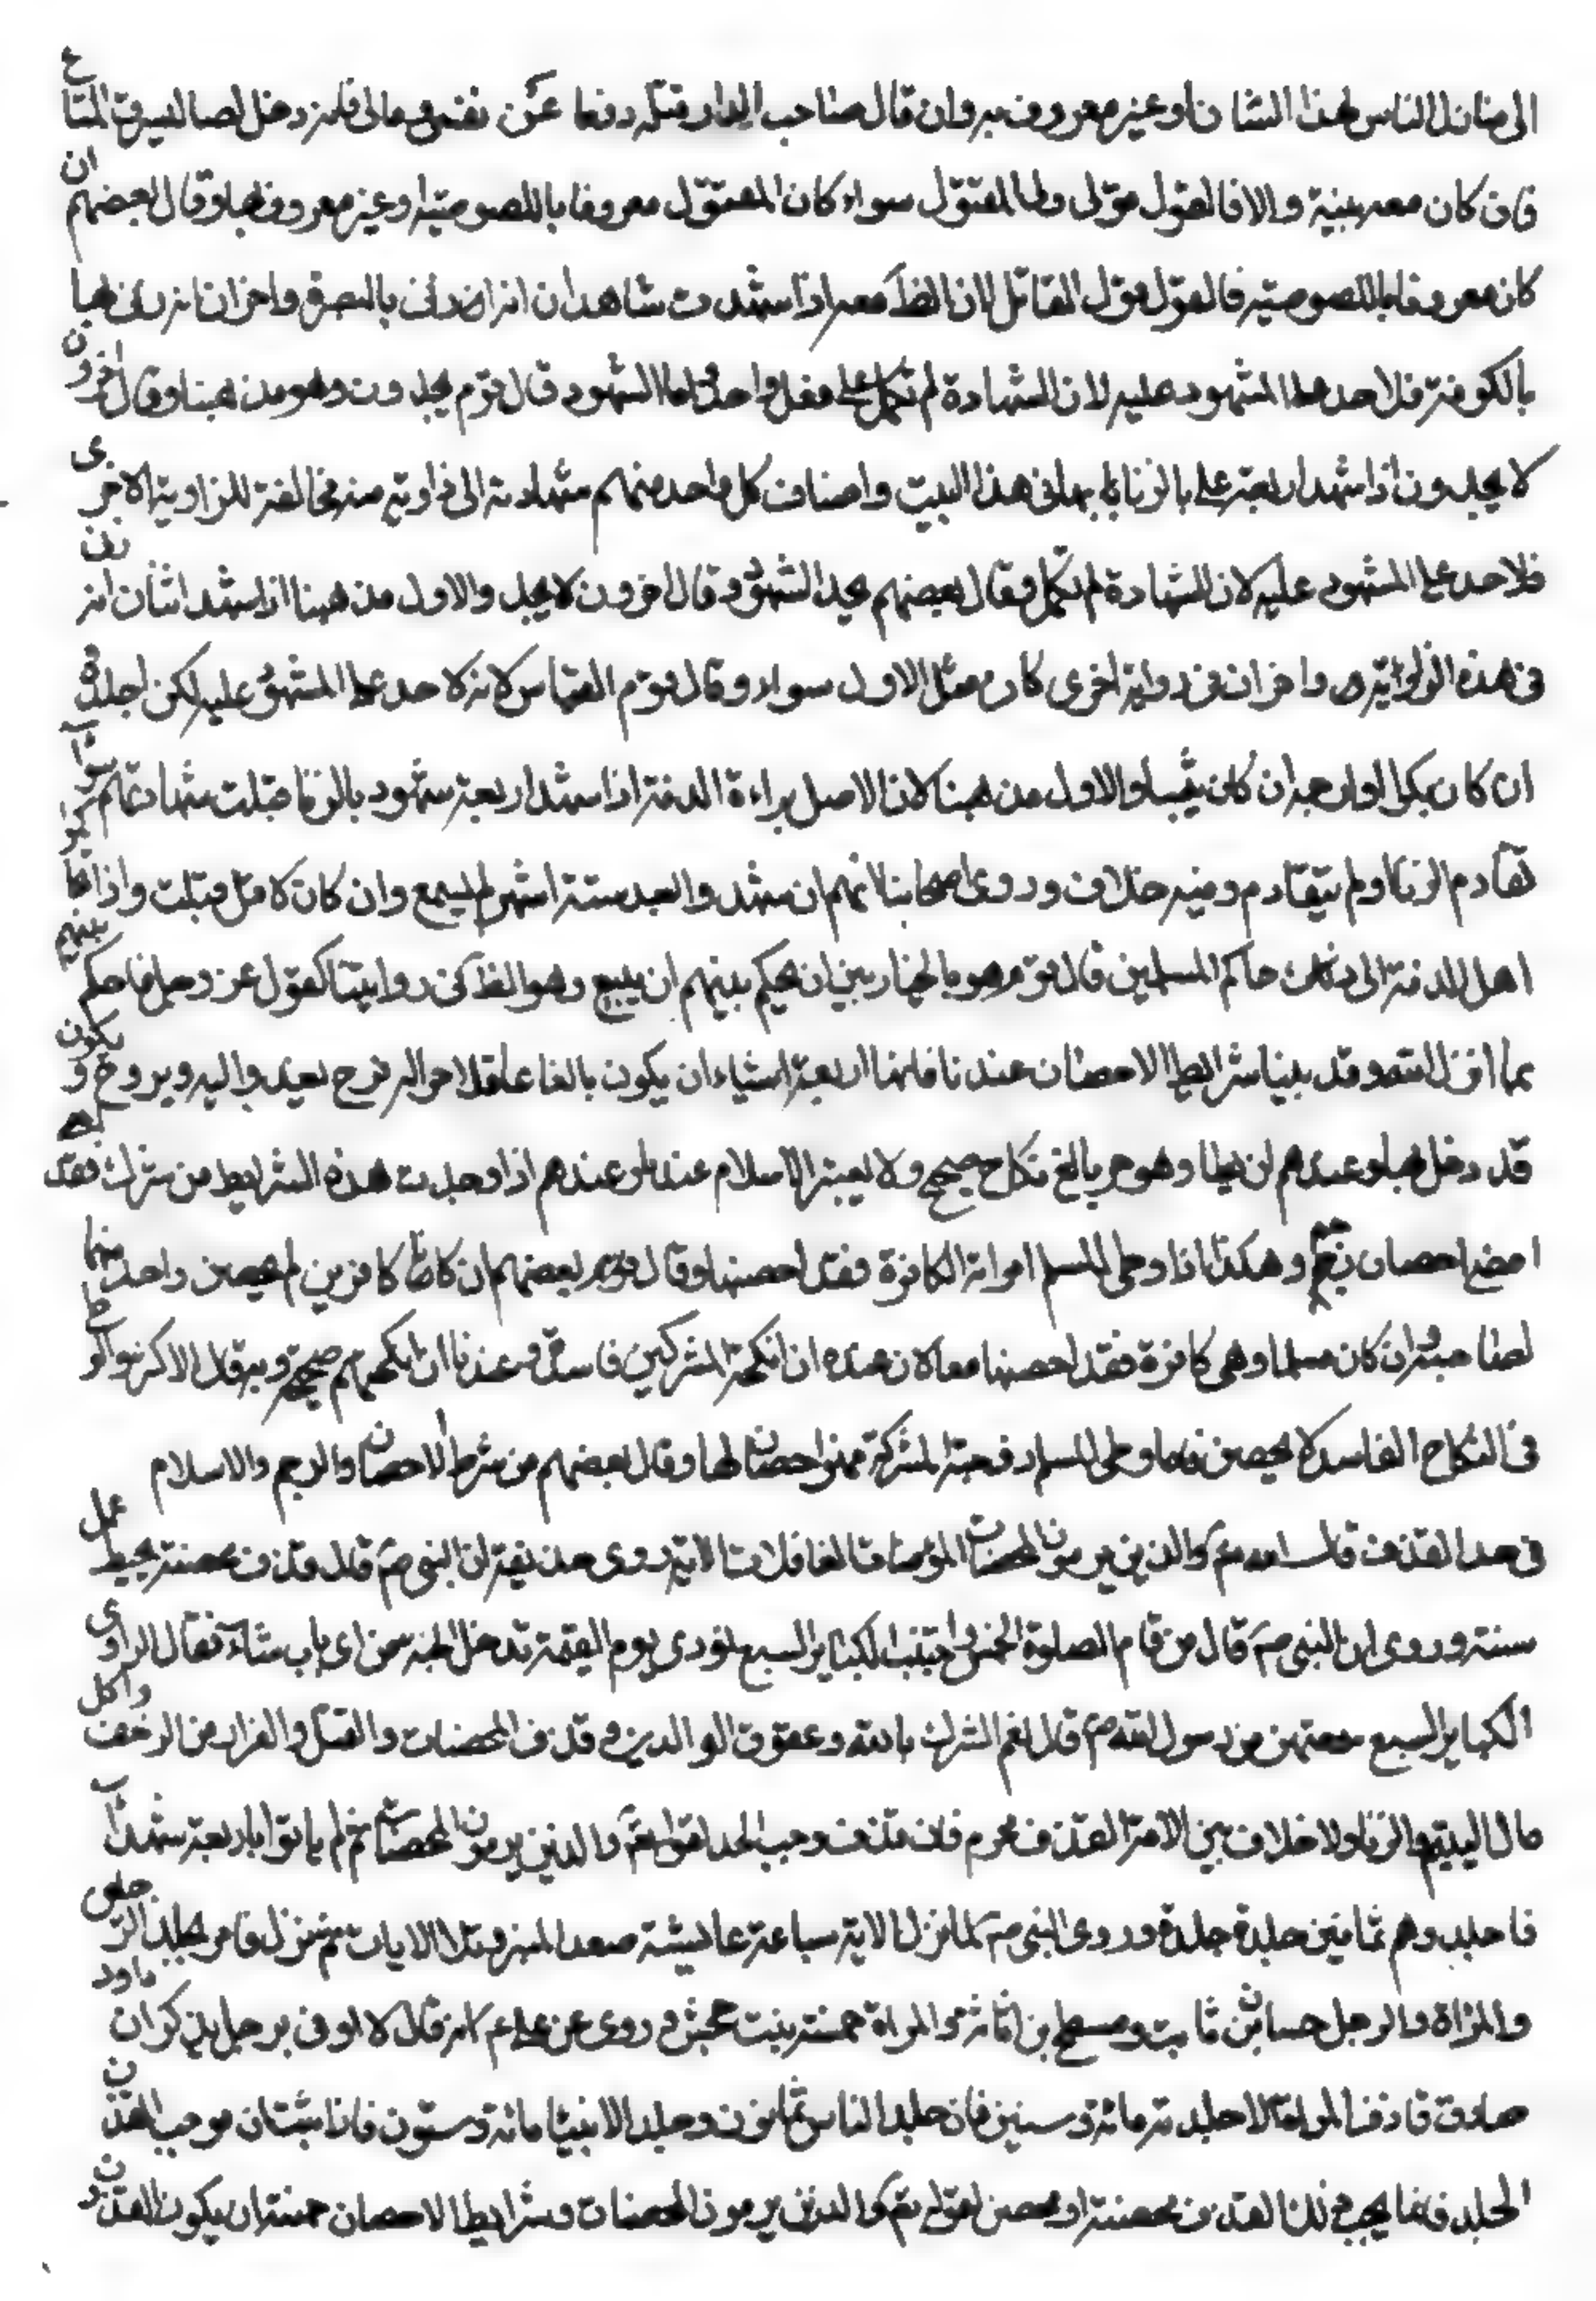 الى منازل الناس لهذا الشان او غير معروف به وان قال صاحب الدار قتله دفعا عن نفسى و مالى فانه دخل لصا ليسرق المتاع
فان كان معه بينة والا فالقول قول ولى المقتول سواء كان المقتول معروفا باللصوصية او غير معروف بها وقال بعضهم ان
كان معروفا باللصوصية فالقول قول القاتل لان الظ معه اذا شهد شاهدان انه زنى بالبصرة واخران انه زنى بها
بالكوفة فلا حد على المشهود عليه لان الشهادة لم تكمل على فعل واحد واما الشهود قال قوم يجلدون وهو مذهبنا وقال اخرون
لا يجلدون اذا شهد اربعة على بالزنا بها فى هذا البيت واضاف كل واحد منهم شهادته الى زاوية منه مخالفة للزاوية الاخرى
فلا حد على المشهود عليه لان الشهادة لم تكمل وقال بعضهم يحد الشهود وقال اخرون لا يحد والاول مذهبنا اذا شهد اثنان انه زنى
فى هذه الزاوية واخران فى زاوية اخرى كان مثل الاول سواء وقال قوم القياس لانه لا حد على المشهود عليه لكن اجلده
ان كان بكرا وارجمه ان كان ثيبا والاول مذهبنا لان الاصل براءة الذمة اذا شهد اربعة شهود بالزنا قبلت شهادتهم سواء
تقادم الزنا او لم يتقادم وفيه خلاف وروى اصحابنا انهم ان شهدوا بعد ستة اشهر لم يسمع وان كان لاقل قبلت واذا تحاكموا
اهل الذمة الى حاكم المسلمين قال قوم هو بالخيار بين ان يحكم بينهم او يدع وهو الظ فى رواياتنا لقوله عز وجل فاحكم بينهم
بما انزل الله وقد بينا شرايط الاحصان عندنا فانها اربعة اشياء ان يكون بالغا عاقلا حرا له فرج يغدو اليه ويروح ويكون
قد دخل بها وعندهم ان يطا وهو حر بالغ نكاح صحيح ولا يعتبر الاسلام عندنا وعندهم اذا وجدت هذه الشرايط من مشرك فقد
احصن احصان رجم وهكذا اذا وطى المسلم امراته الكافرة فقد احصنها وقال بعضهم ان كانا كافرين لم يحصن واحد منهما
صاحبه وان كان مسلما وهى كافرة فقد احصنها معا لان عنده ان انكحة المشركين فاسدة وعندنا ان انكحتهم صحيحة وبه قال الاكثر والوطى
فى النكاح الفاسد لا يحصن فاما وطى المسلم زوجته المشركة فهو احصان لها وقال بعضهم من شرط الاحصان والرجم والاسلام
فى حد القذف قال الله تعم والذين يرمون المحصنات المؤمنات الغافلات الاية روى حذيفة ان النبى ص قال قذف محصنة يحبط عمل
سنة وروى ان النبى ص قال من قام الصلوة الخمس واجتنب الكباير السبع نودى يوم القيمة تدخل الجنة من اى باب شاء فقال الراوى
الكباير السبع سمعتهن من رسول الله ص قال نعم الشرك بالله وعقوق الوالدين وقذف المحصنات والقتل والفرار من الزحف واكل
مال اليتيم والزنا ولا خلاف بين الامة ان القذف محرم فان قذف وجب الحد لقوله تعم والذين يرمون المحصنات ثم لم ياتوا باربعة شهداء
فاجلدوهم ثمانين جلدة وروى ان النبى ص لما نزل الاية ساعة عايشة صعد المنبر وتلا الايات ثم نزل فامر بجلد الرجلين
والمراة والرجل حسان بن ثابت ومسطح بن اثاثة والمراة حمنة بنت جحش وروى عن على ع انه قال لا اوتى برجل يذكر ان داود
صادف المراة الا جلدته مائة وستين فان جلد الناس ثمانون وجلد الانبياء مائة وستون فاذا ثبت ان موجب القذف
الجلد فانما يجب ذلك القذف محصنة او محصن لقوله تعم والذين يرمون المحصنات وشرايط الاحصان خمسة ان يكون المقذوف